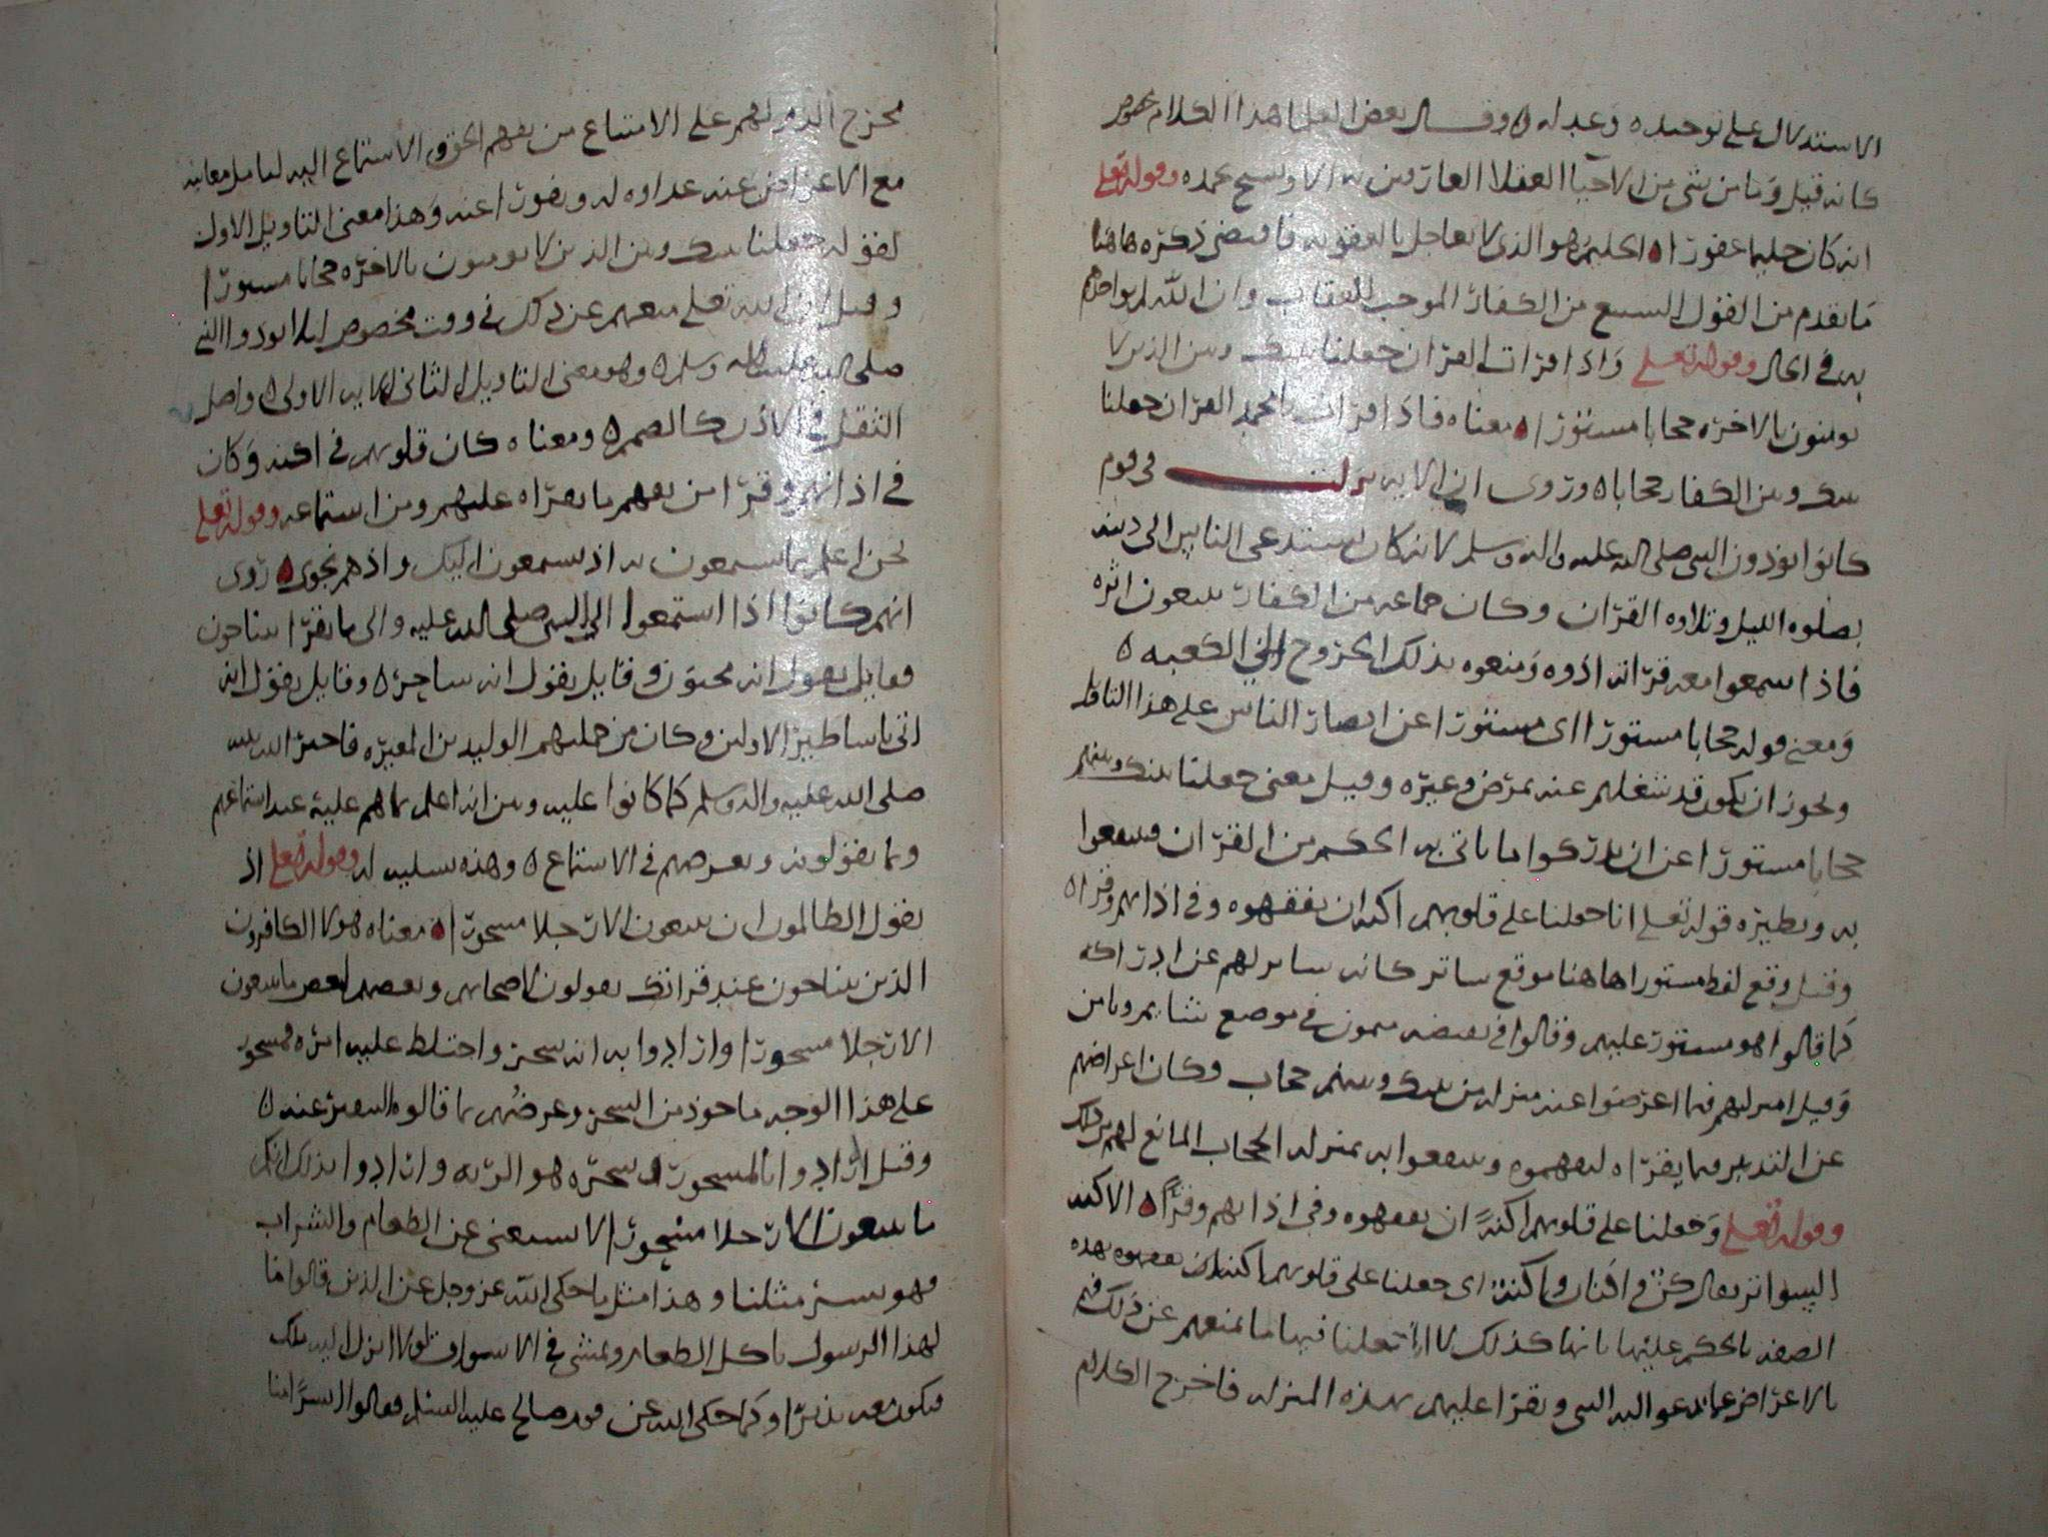 الاستدلال على توحيده وعدله ه وقال بعض العلما هذا الكلام مخصوص
كانه قيل وما من شي من الاحيا العقلا العارفين به الا ويسبح بحمده وقوله تعلى
انه كان حليما غفورا ه الحليم هو الذي لا يعاجل بالعقوبه فاقتضى ذكره هاهنا
ما تقدم من القول الشنيع من الكفار الموجب للعقاب وان الله لم يواخذهم
به في الحال وقوله تعلى واذا قرات القران جعلنا بينك وبين الذين لا
يومنون بالاخره حجابا مستورا ه معناه فاذا قرات يا محمد القران جعلنا
بينك وبين الكفار حجابا ه وروى ان الايه نزلت في قوم
كانوا يوذون النبي صلى الله عليه واله وسلم لانه كان يستدعى الناس الى دينه
بصلوه الليل وتلاوه القران وكان جماعه من الكفار يتبعون اثره
فاذا سمعوا معه قراته اذوه ومنعوه بذلك الخروج الى الكعبه ه
ومعنى قوله حجابا مستورا اى مستورا عن ابصار الناس على هذا التاويل
ويجوز ان يكون قد شغلهم عنه بمرض وغيره وقيل معنى جعلنا بينك وبينهم
حجابا مستورا عن ان يدركوا ما ياتى به الحكم من القران فينتفعوا
به ونظيره قوله تعلى انا جعلنا على قلوبهم اكنه ان يفقهوه وفي اذانهم وقرا ه
وقيل وقع لفظ مستورا هاهنا موقع ساتر كانه ساتر لهم عن ادراكه
كما قالوا هو مستور عليهم وقالوا في نقيضه ميمون في موضع شايم ويامن
وقيل انه لهم فيما اعرضوا عنه منزله من بينك وبينهم حجاب وكان اعراضهم
عن التدبر فيما يقراه ليفهموه وينتفعوا به بمنزله الحجاب المانع لهم من ذلك
وقوله تعلى وجعلنا على قلوبهم اكنة ان يفقهوه وفي اذانهم وقرا ه الاكنه
السواتر يقال كن وافنان واكنه اى جعلنا على قلوبهم اكنه ان يفقهوه بهذه
الصفه بالحكم عليها بانها كذلك لا انا فعلنا فيها ما يمنعهم عن ذلك فهم
بالاعراض عما يدعو اليه النبي ويقرا عليهم بهذه المنزله فاخرج الكلام
مخرج الذم لهم على الامتناع من يفهم الحق والاستماع اليه لتامل معانيه
مع الاعراض عنه عداوه له ونفورا عنه وهذا معنى التاويل الاول
لقوله جعلنا بينك وبين الذين لا يومنون بالاخره حجابا مستورا
وقيل ان الله تعلى منعهم عن ذلك في وقت مخصوص ليلا يوذوا النبي
صلى الله عليه واله وسلم ه وهو معنى التاويل الثاني في الايه الاولى ه واصل
الثقل في الاذن كالصمم ه ومعناه كان قلوبهم في اكنه وكان
في اذانهم وقرا من يفهم ما يقراه عليهم ومن استماعه وقوله تعلى
نحن اعلم بما يستمعون به اذ يستمعون اليك واذ هم نجوى ه روى
انهم كانوا اذا استمعوا الى النبي صلى الله عليه والى ما يقرا يتناجون
فقايل يقول انه مجنون وقايل يقول انه ساحر ه وقايل يقول انه
اتى باساطير الاولين وكان من جملتهم الوليد بن المغيره فاخبر الله نبيه
صلى الله عليه واله وسلم كما كانوا عليه وبين انه اعلم بما هم عليه عند استماعهم
وما يقولونه وبغرضهم في الاستماع ه وهذه تسليه له وقوله تعلى اذ
يقول الظالمون ان يتبعون الا رجلا مسحورا ه معناه هولا الكافرون
الذين يتناجون عند قراتك يقولون لاصحابهم وبعضهم لبعض ما يتبعون
الا رجلا مسحورا وارادوا به انه سحر واختلط عليه امره فمسحور
على هذا الوجه ماخوذ من السحر وغرضهم بما قالوه التنفير عنه ه
وقيل ارادوا بالمسحور ان سحره هو الريه وارادوا بذلك انكم
ما يتبعون الا رجلا مسحورا لا يستغنى عن الطعام والشراب
فهو بشر مثلنا وهذا مثل ما حكى الله عز وجل عن الذين قالوا ما
لهذا الرسول ياكل الطعام ويمشى في الاسواق لولا انزل اليه ملك
فيكون معه نذيرا وكما حكى الله عن قوم صالح عليه السلم فقالوا ابشرا منا